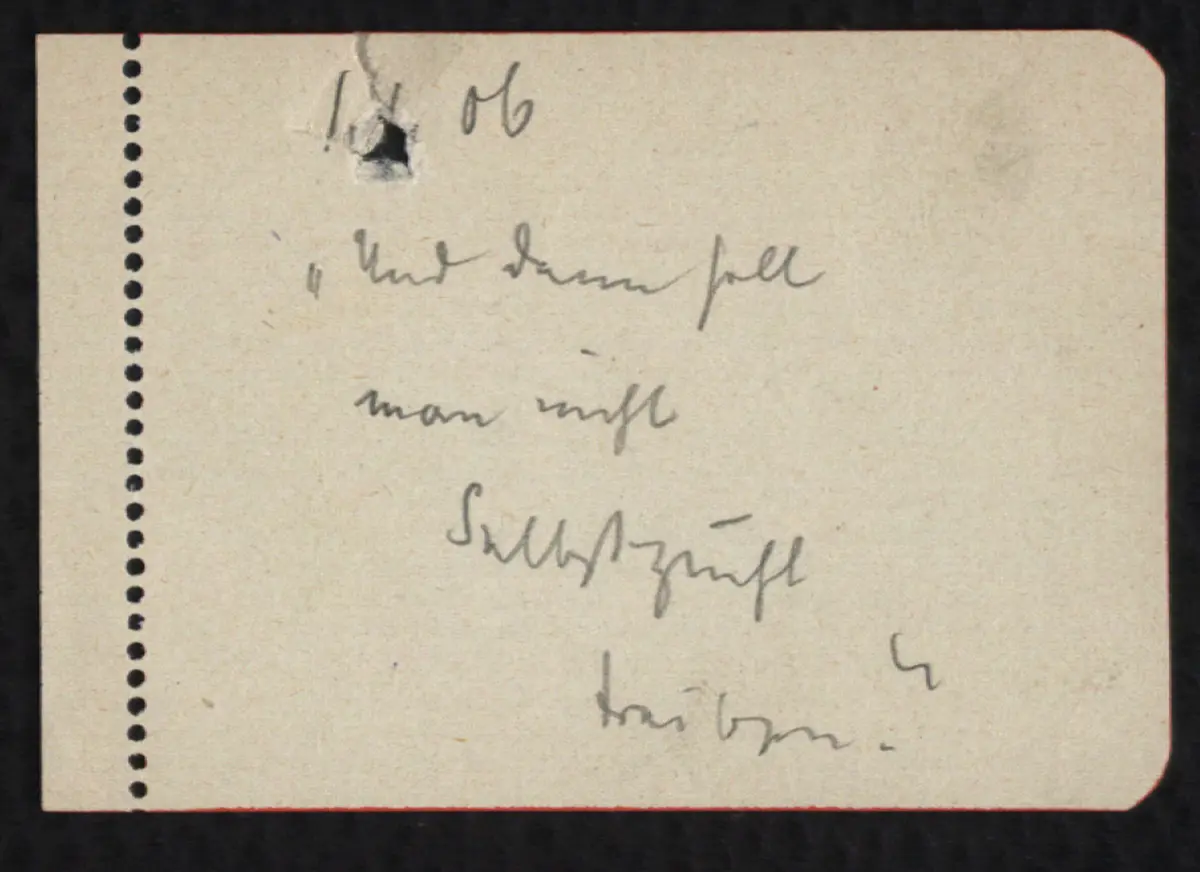 1. 1 06
„Und dann soll
man nicht
Selbstzucht
treiben."